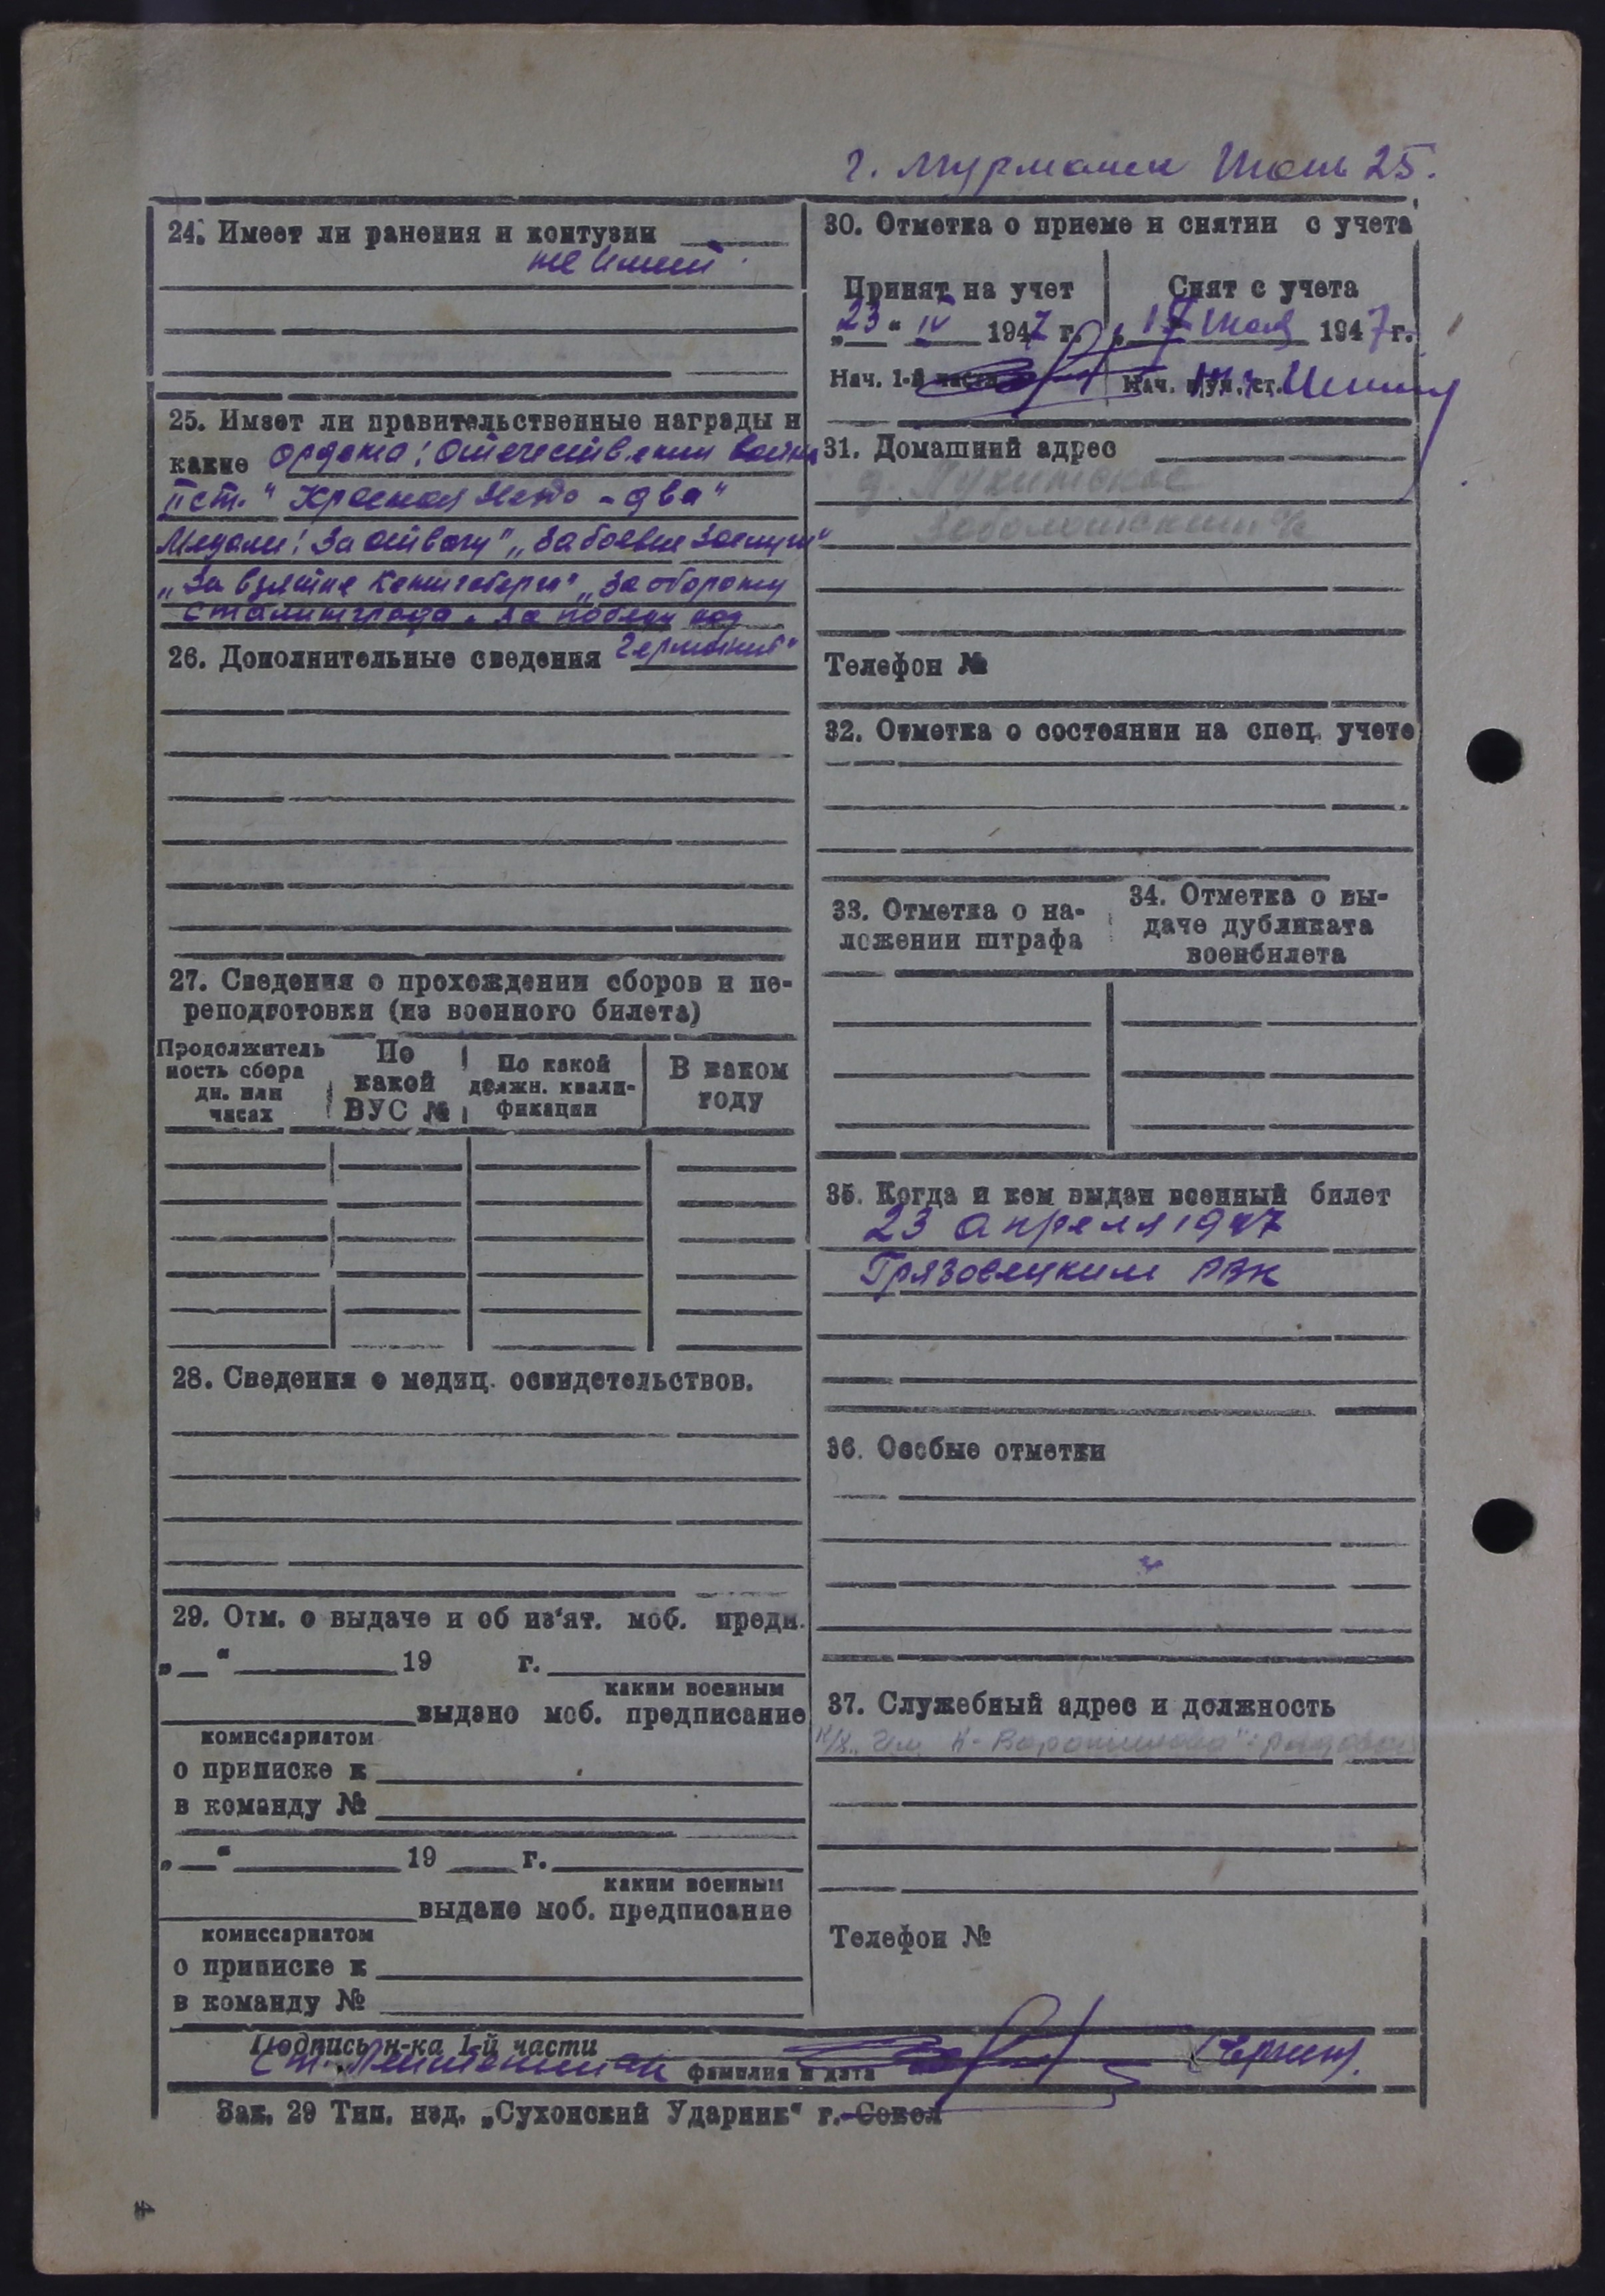 г. Мурманск 25.
24. Имеет ли ранения и контузии
не имеет
25. Имеет ли правительственные награды и
какие ордена: Отечествени войны
II ст." Красная Звезда - два"
Медали: За отвагу" „За боевые заслуги"
„За взятие Кенигсберга" „За оборону
Сталинграда. За победу над
Германией"
26. Дополнительные сведения
27. Сведения о прохождении сборов и пе-
реподготовки (из военного билета)
Продолжитель
ность сбора
дн. или
часах
По
какой
ВУС №
По какой
должн. квали-
фикации
В каком
году
28. Сведения о медиц. освидетельствов.
29. Отм. о выдаче и об из'ят. моб. предп.
„ " 19 г.
каким военным
выдано моб. предписание
комиссариатом
о приписке к
в команду №
„ " 19 г.
каким военным
выдано моб. предписание
комиссариатом
о приписке к
в команду №
30. Отметка о приеме и снятии с учета
Принят на учет
„23" IV 1947 г.
Нач. 1-й части
Снят с учета
17 мая 1947 г.
Нач. ст.
31. Домашний адрес
д.
Заболотский с/с
Телефон №
32. Отметка о состоянии на спец. учете
33. Отметка о на-
ложении штрафа
34. Отметка о вы-
даче дубликата
военбилета
35. Когда и кем выдан военный билет
23 апреля 1947
Грязовецким РВК
36. Особые отметки
37. Служебный адрес и должность
к/х „Им К-Ворошилова" рядовой
Телефон №
Подпись н-ка 1-й части
ст. Лейтенант
фамилия и дата
Зак. 29 Тип. изд. „Сухонский Ударник" г. Сокол
4